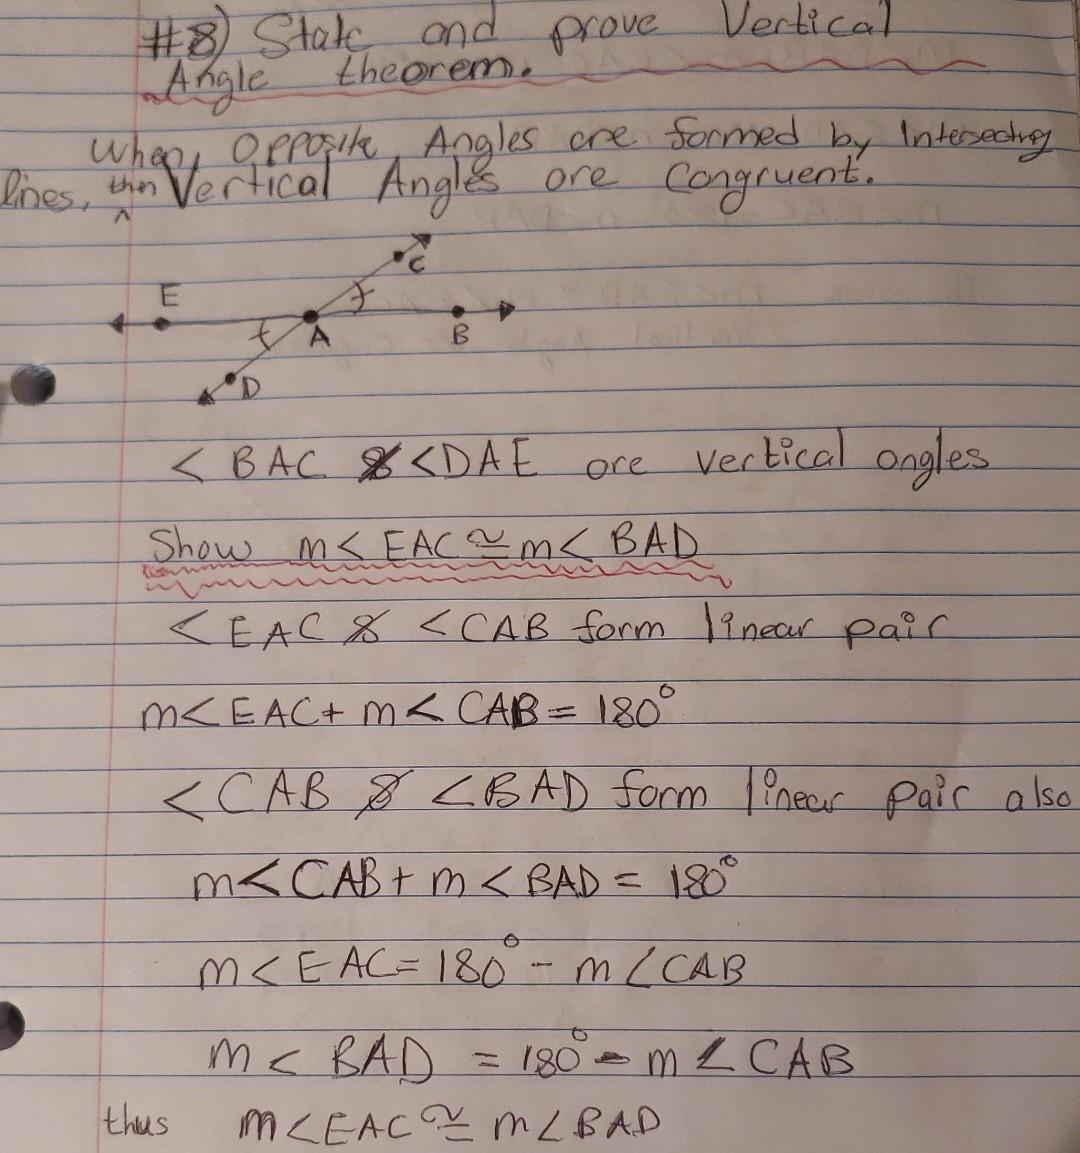 #8) State and prove Vertical
Angle theorem.
When, Opposite Angles are formed by Intersecting
lines, then Vertical Angles are Congruent.
C
E
A
B
D
< BAC & <DAE are vertical angles
Show m< EAC ≅ m< BAD
<EAC & <CAB form linear pair
m<EAC + m< CAB = 180°
<CAB & <BAD form linear pair also
m<CAB + m <BAD = 180°
m<EAC = 180° - m ∠CAB
m < BAD = 180° - m ∠ CAB
thus m<EAC ≅ m∠BAD